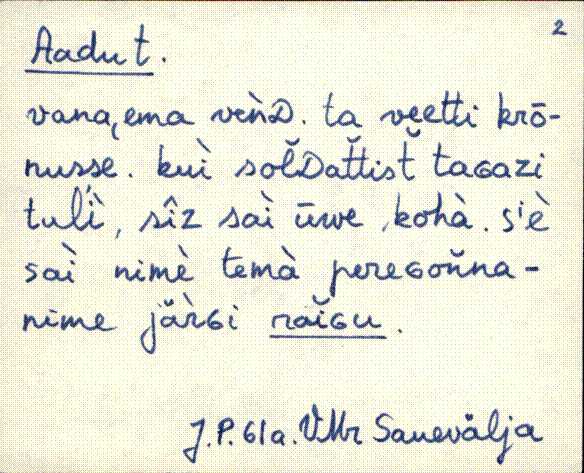 2
Aadu t.
vana‿ema veǹD. ta veetti krō-
nusse. kuì sol̆Dat̆tist̆ taGazi
tul'ì, sîz saì ūwe kohà. s'è
saì nimè temà pereGon̆na-
nime jär̆Gi raĭGu.
J.P. 61a. VMr Sauevälja